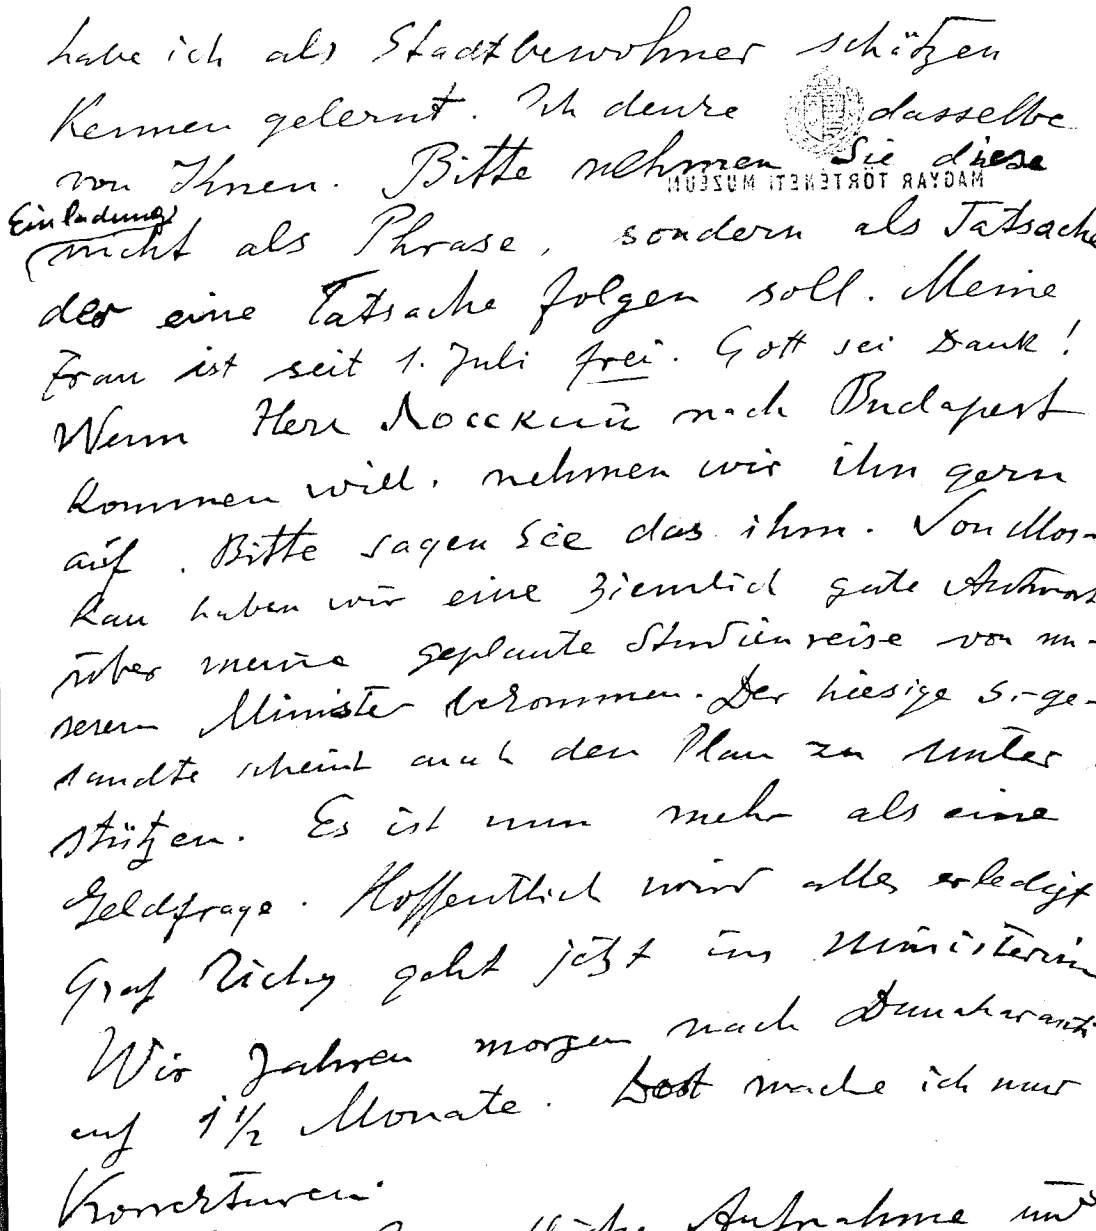 habe ich als Stadtbewohner schätzen
Kennen gelernt. Ich denke dasselbe
von Ihnen. Bitte nehmen Sie diese
MAGYAR TÖRTÉNETI MUZEUM
Einladung
nicht als Phrase, sondern als Tatsache
der eine Tatsache folgen soll. Meine
Frau ist seit 1. Juli frei. Gott sei Dank!
Wenn Herr Лосский nach Budapest
kommen will, nehmen wir ihn gern
auf. Bitte sagen Sie das ihm. Von Mos-
kau haben wir eine ziemlich gute Antwort
über meine geplante Studienreise von un-
serem Minister bekommen. Der hiesige Ge-
sandte scheint auch den Plan zu unter
stützen. Es ist nun mehr als eine
Geldfrage. Hoffentlich wird alles erledigt
Graf Zichy geht jetzt ins Ministerium
Wir fahren morgen nach Dunaharaszti
auf 1 1/2 Monate. Dort mache ich nur
Korrekturen.
Aufnahme und